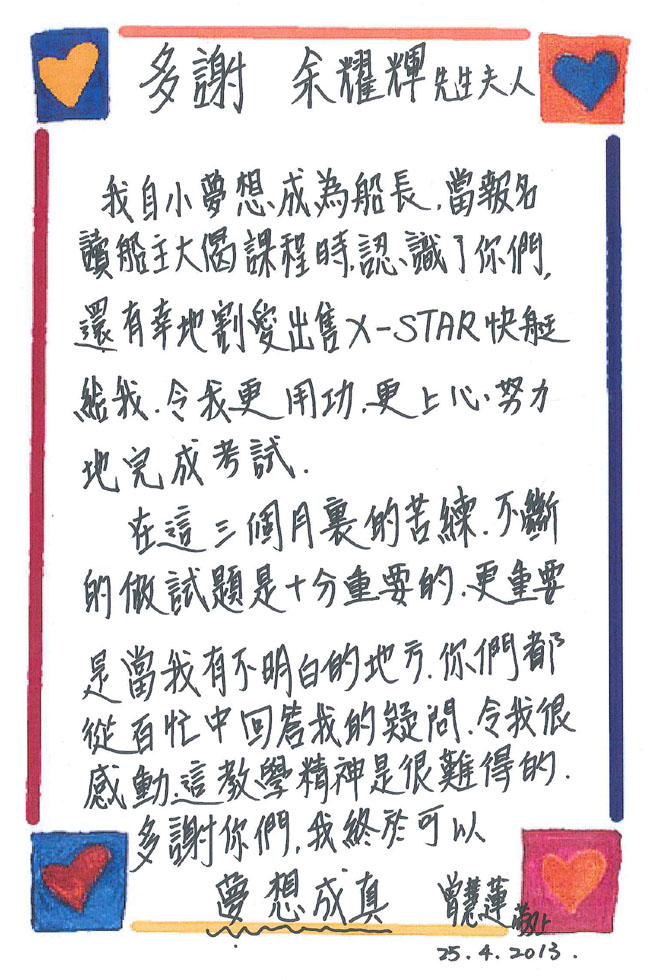 多謝 余耀輝先生夫人
我自小夢想成為船長，當報名
讀船主大偈課程時，認識了你們，
還有幸地割愛出售X-STAR快艇
給我．令我更用功．更上心努力
地完成考試．
在這三個月裏的苦練．不斷
的做試題是十分重要的．更重要
是當我有不明白的地方．你們都
從百忙中回答我的疑問．令我很
感動．這教學精神是很難得的．
多謝你們，我終於可以
夢想成真 曾慧蓮
25.4.2013.